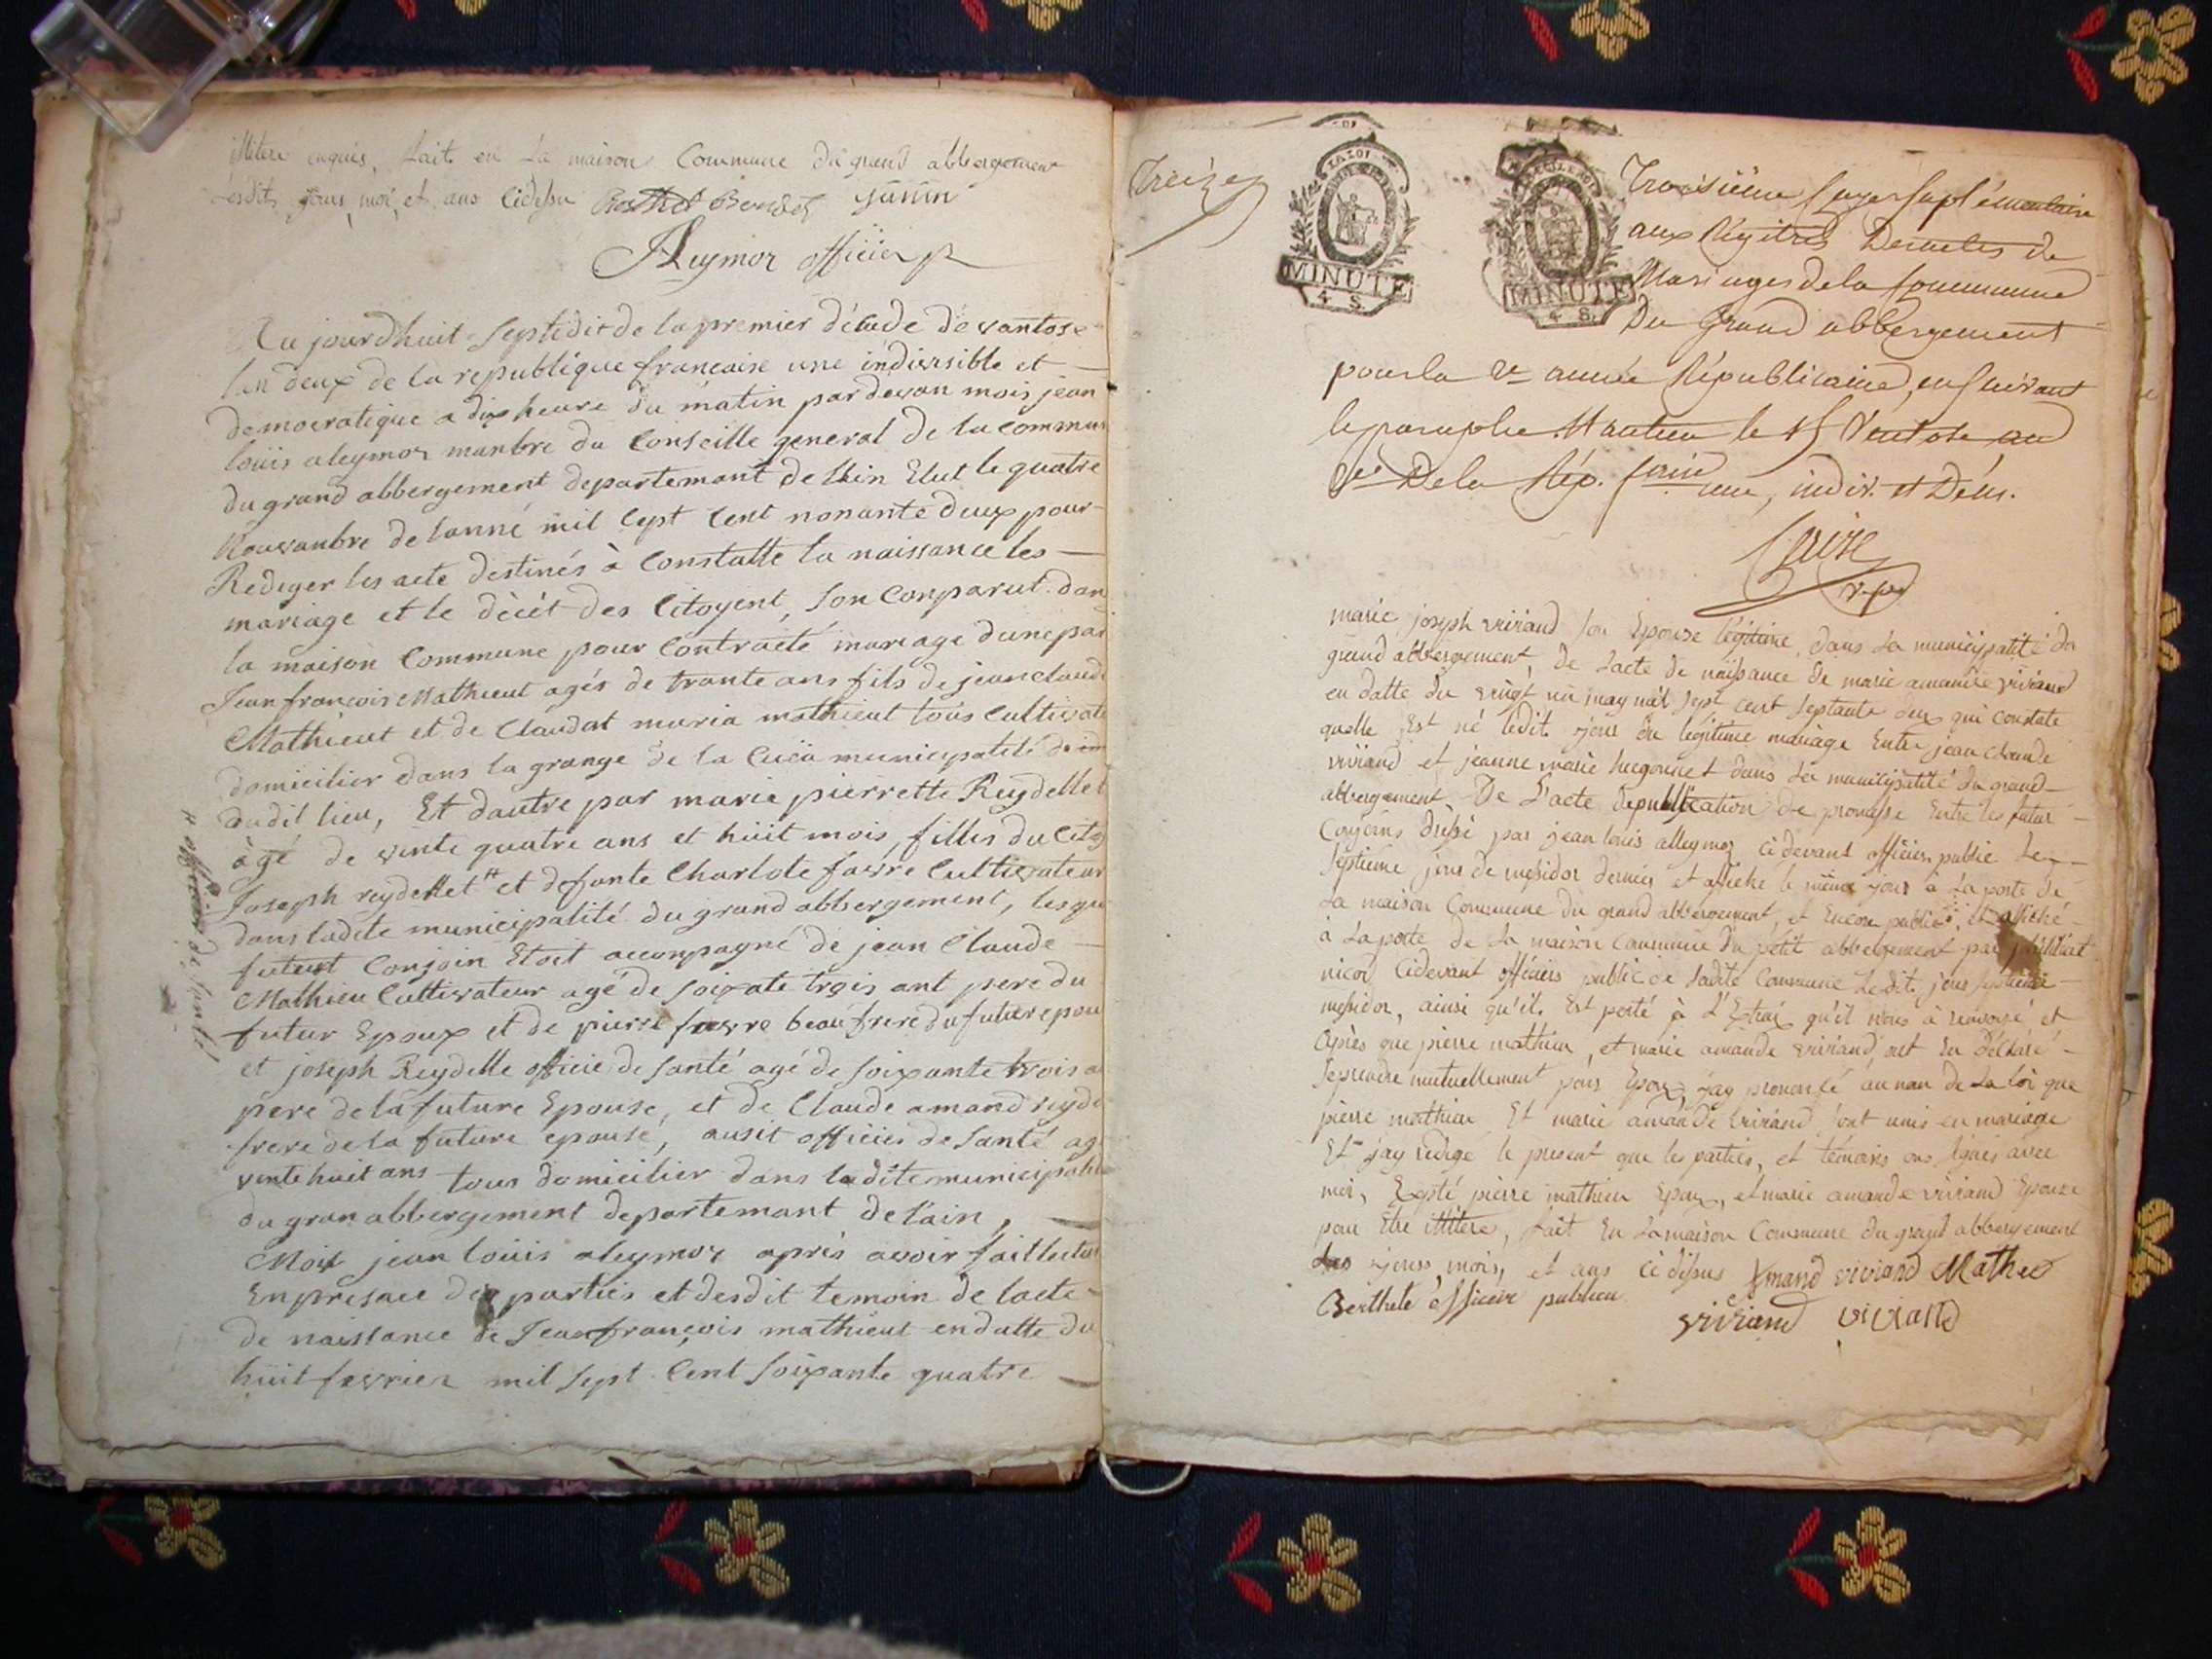 illitere enquis, fait en la maison Commune du grand abbergement
lesdits jours, moi, et ans cidessu Berthet Bendet janin
Aleymoz officier p
Au jourdhuit Septidit de la premier décade de vantose
lan deux de la republique francaise une indivisible et
democratique a dix heure du matin par devan mois jean
loüis aleymoz manbre du Conseille general de la commun
du grand abbergement departemant de lAin Elut le quatre
Novanbre de lanné mil Sept Cent nonante deux pour
Rediger les acte destinés à Constatte la naissance les
mariage et le dècèt des Citoyent, Son Conparut dan
la maison Commune pour Contracté mariage dune par
Jean francois Mathieut agés de trante ans fils de jean claude
Mathieut et de Claudat maria mathieut tous Cultivate
domicilier dans la grange de la Cuëa municipalité de
dudit lieu, Et dautre par maria pierrette Reydellet
àgé de vinte quatre ans et hüit mois, filles du Cito
Joseph reydellet # et defonte Charlote favre Cultivateur
dans ladite municipalité du grand abbergement, lesqu
futurt Conjoin Etoit acconpagné de jean Claude
Mathieu Cultivateur agé de soixate trois ant pere du
futur Epoux et de pierre favre beau frere du future pou
et joseph Reydelle officié de santé agé de soixante trois a
pere de la future Epouse, et de Claude amand reyde
frere de la future epouse, ausit officier de Santé ag
vinte huit ans tous domicilier dans ladite municipalit
du gran abbergement departemant de l'ain,
Moit jean loüis aleymoz aprés avoir fait lectur
En presace des parties et desdit temoin de lacte
de naissance de Jean françois mathieut en datte du
hüit fevrier mil Sept Cent Soixante quatre
# officier de santé
Treize
LA LOI
MINUTE
4 S.
MINUTE
4 S.
Troisième Cayer Suplémentaire
aux Régitres Deactes de
Mariages de la Commune
Du Grand abbergement
pour la 2e année Républicaine, en suivant
le paraphe Nantua le 15 Ventose an
2e De la Rép. fcaise une, indiv. et Dém.
marie joseph vivirand son Epouse légitime, dans la municipalité du
grand abbergement, De l'acte de naissance de marie amande vivirand
en datte du vingt un may mil sept cent septante deux qui constate
quelle Est né ledit jour du légitime mariage Entre jean claude
viviand et jeanne marie hugonnet dans la municipalité du grand
abbergement, De l'acte depublication de promesse Entre les futur
Conjoins dréssé par jean louis alleymoz cidevant officier public le
septieme jour de mesidor dernier et affiché le même jour à la porte de
la maison Commune du grand abbergement, et Encore publié et affiché
à la porte de la maison Commune du petit abbergement par
nicod Cidevant officiers public de ladite Commune ledit jour septieme
mesidor, ainsi qu'il Est porté à l'Extrai qu'il nous à renvoyé, et
Après que pierre mathieu, et marie amande vivirand ont Eu déclaré
se prendre mutuellement pour Epoux, j'ay prononsé au nom de la loi que
pierre mathieu Et marie amande vivirand sont unis en mariage
Et j'ay redigé le present que les parties, et témoins ons signés avec
moi, Exepté pierre mathieu Epoux, et marie amande vivirand Epouze
pour Etre illitere, fait En la maison Commune du grand abbergement
les jours, mois, et ans cidesus Amand viviand Mathieu
Berthet officier publicu
viviand viviand